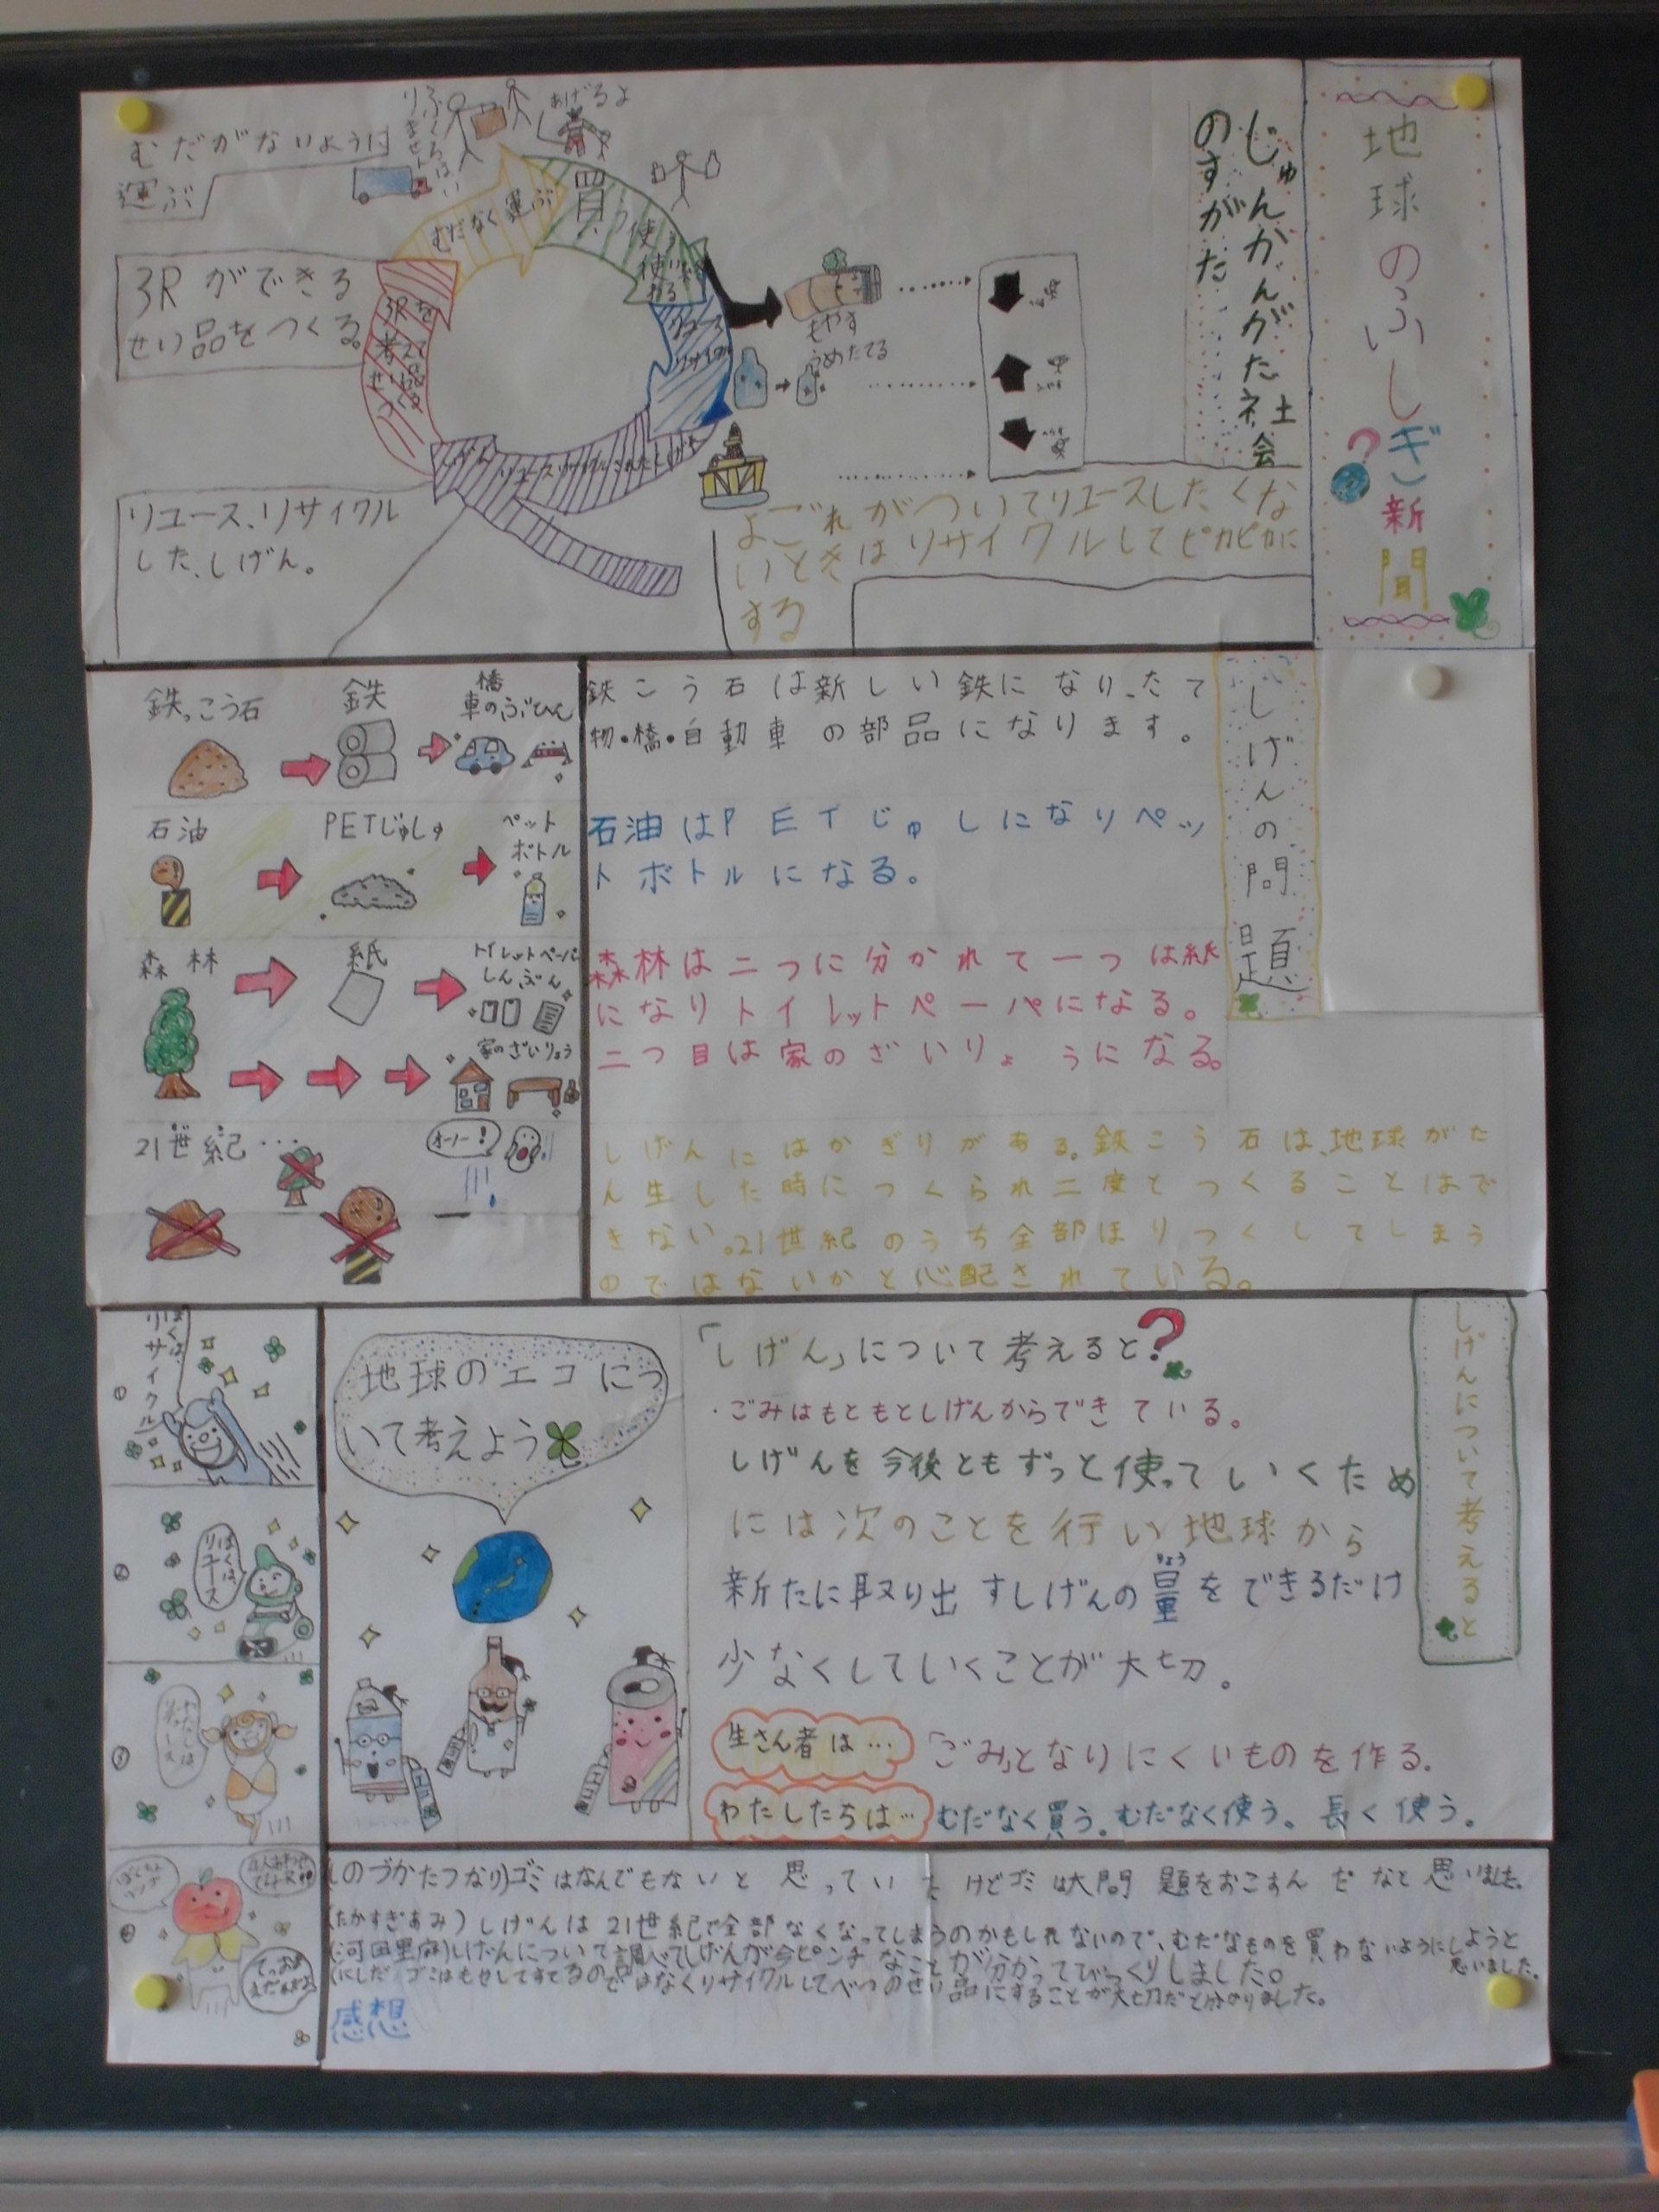 地球のふしぎ新聞
じゅんかんがた社会
のすがた
むだがないように
運ぶ
あげるよ
3Rができる
せい品をつくる。
むだなく運ぶ
買う
使う
3Rを
考えて
もやす
うめたてる
リユース、リサイクル
した、しげん。
よごれがついてリユースしたくな
いときはリサイクルしてピカピカに
する
しげんの問題
鉄こう石は新しい鉄になり、たて
物・橋・自動車の部品になります。
石油はPETじゅしになりペッ
トボトルになる。
森林は二つに分かれて一つは紙
になりトイレットペーパになる。
二つ目は家のざいりょうになる。
しげんにはかぎりがある。鉄こう石は、地球がた
ん生した時につくられ二度とつくることはで
きない。21世紀のうち全部ほりつくしてしまう
のではないかと心配されている。
鉄こう石
鉄
橋
車のぶひん
石油
PETじゅしゅ
ペット
ボトル
森林
紙
トイレットペーパー
しんぶん
家のざいりょう
21世紀...
オーノー!
しげんについて考えると
「しげん」について考えると?
・ごみはもともとしげんからできている。
しげんを今後ともずっと使っていくため
には次のことを行い地球から
新たに取り出すしげんの量をできるだけ
りょう
少なくしていくことが大切。
生さん者は…「ごみ」となりにくいものを作る。
わたしたちは…むだなく買う。むだなく使う。長く使う。
地球のエコにつ
いて考えよう
ぼくは、
リサイクル
ぼくは、
リユース
ゴミはなんでもないと思っていたけどゴミは大問題をおこすんだなと思いました。
(たかすぎあみ)しげんは21世紀で全部なくなってしまうのかもしれないので、むだなものを買わないようにしようと
思いました。
しげんについて調べてしげんが今ピンチなことが分かってびっくりしました。
ゴミはもせしてすてるのではなくリサイクルしてべつのせい品にすることが大切だと分かりました。
感想